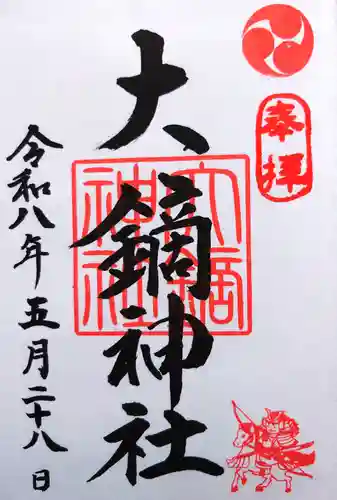 奉拝
大鏑神社
大鏑神社
令和八年五月二十八日